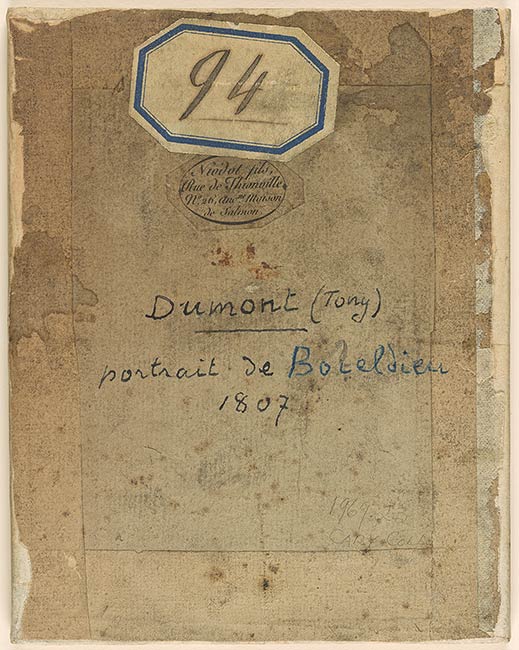 94
Niodot fils,
Rue de Thionville
N° 26, anc.ne Maison
de Salmon.
Dumont (Tony)
portrait de Boieldieu
1807
1969.